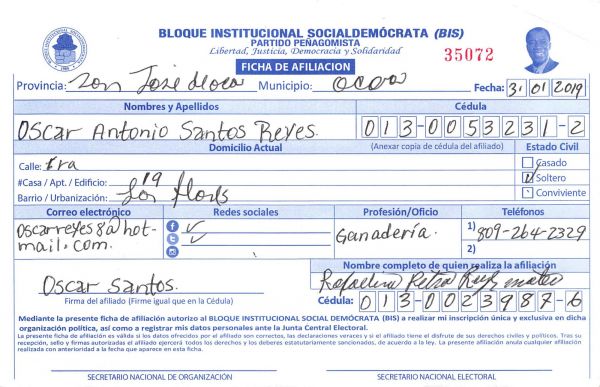 BLOQUE INSTITUCIONAL SOCIALDEMÓCRATA (BIS)
PARTIDO PEÑAGOMISTA
Libertad, Justicia, Democracia y Solidaridad
35072
FICHA DE AFILIACION
Provincia: San José de Ocoa Municipio: Ocoa Fecha: 31/01/2019
Nombres y Apellidos Cédula
Oscar Antonio Santos Reyes. 013-0053231-2
Domicilio Actual (Anexar copia de cédula del afiliado) Estado Civil
Calle: 1ra Casado
#Casa / Apt. / Edificio: 19 Soltero
Barrio / Urbanización: Las flores Conviviente
Correo electrónico Redes sociales Profesión/Oficio Teléfonos
oscarreyes8@hot- Ganadería. 1) 809-264-2329
mail.com. 2)
Nombre completo de quien realiza la afiliación
Oscar Santos. Rafaelina Petra Ruiz mateo
Firma del afiliado (Firme igual que en la Cédula) Cédula: 013-0023987-6
Mediante la presente ficha de afiliación autorizo al BLOQUE INSTITUCIONAL SOCIAL DEMÓCRATA (BIS) a realizar mi inscripción única y exclusiva en dicha
organización política, así como a registrar mis datos personales ante la Junta Central Electoral.
La presente ficha de afiliación es válida y los datos ofrecidos por el afiliado son correctos, las declaraciones veraces y si el afiliado tiene el disfrute de sus derechos civiles y políticos. Tras su
recepción, sello y firmas autorizadas el afiliado ejercerá todos los derechos y los deberes estatutariamente sancionados, de acuerdo a la ley. La presente afiliación anula cualquier afiliación
realizada con anterioridad a la fecha que aparece en esta ficha.
SECRETARIO NACIONAL DE ORGANIZACIÓN SECRETARIO NACIONAL ELECTORAL